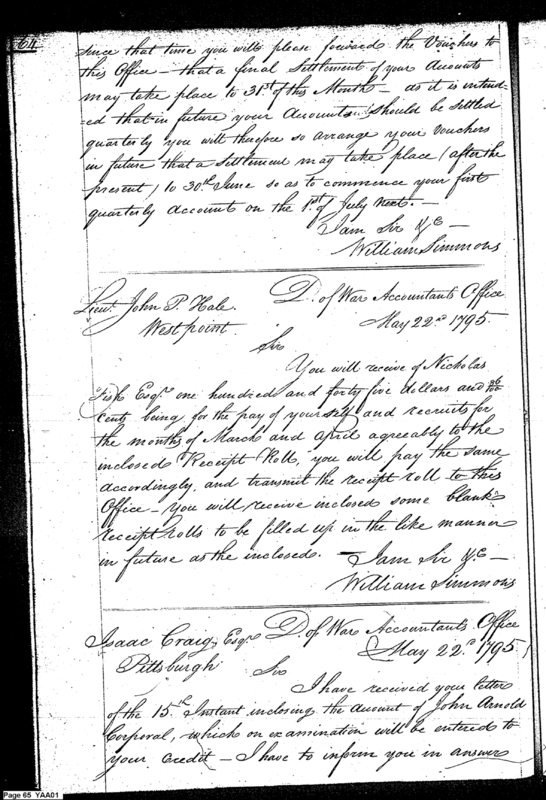 64
since that time you will please forward the Vouchers to
this Office – that a final Settlement of your Accounts
may take place to 31st of this Month – as it is intend=
=ed that in future your Accounts should be settled
quarterly you will therefore so arrange your Vouchers
in future that a settlement may take place (after the
present) to 30th June so as to commence your first
quarterly account on the 1st of July next. –
I am Sir &c –
William Simmons
D. of War Accountants Office
Lieut. John P. Hale
May 22d 1795.
Westpoint.
Sir
You will receive of Nicholas
Fish Esqr. one hundred and forty five dollars and 26/100
cents being for the pay of yourself and recruits for
the months of March and April agreeably to the
inclosed Receipt Roll, you will pay the same
accordingly, and transmit the receipt roll to this
Office – you will receive inclosed some blank
receipt rolls to be filled up in the like manner
in future as the inclosed. – I am Sir &c –
William Simmons
D. of War Accountants Office
Isaac Craig Esqr.
May 22d 1795
Pittsburgh
Sir
I have received your letter
of the 15th Instant inclosing the amount of John Arnold
Corporal, which on examination will be entered to
your Credit – I have to inform you in answer
Page 65 YAA01